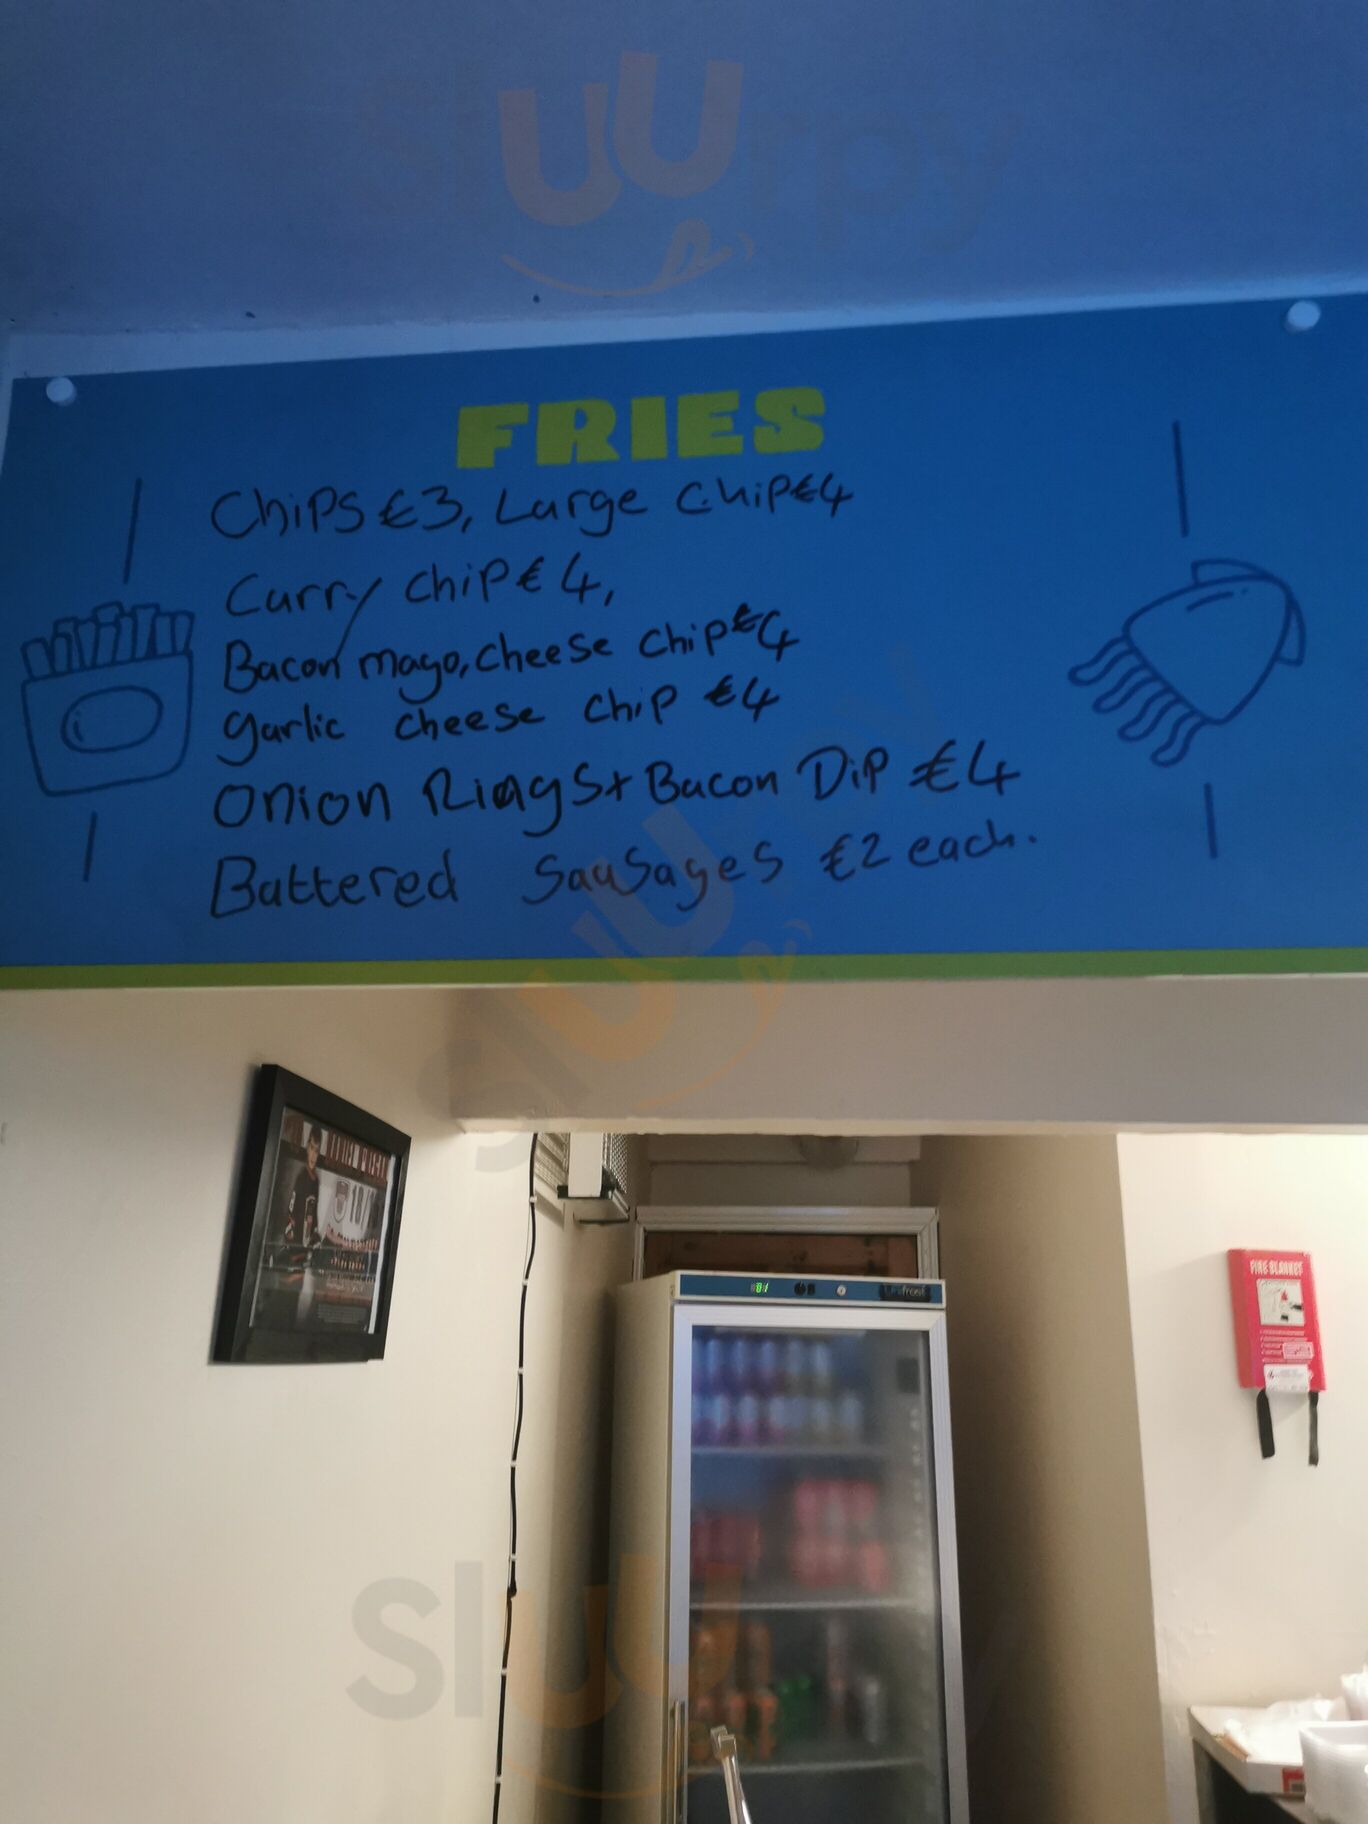 sluurpy
FRIES
Chips €3, Large chip €4
Curry chip €4,
Bacon mayo, cheese chip €4
garlic cheese chip €4
Onion Rings + Bacon Dip €4
Battered Sausages €2 each.
sluurpy
DANIEL
FIRE BLANKET
Unifrost
sluurpy